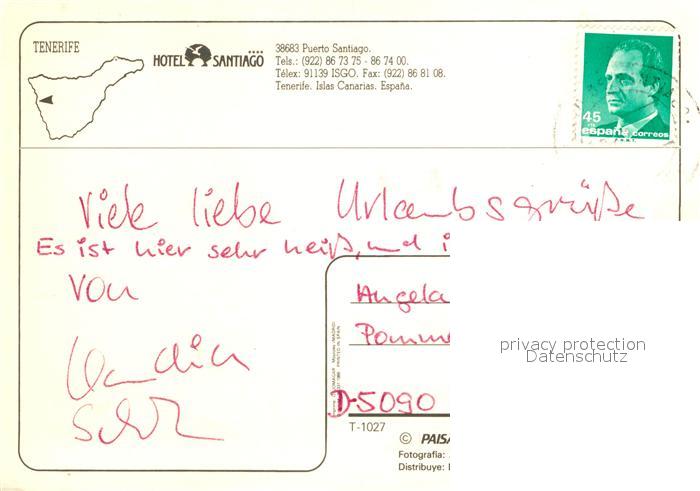 TENERIFE
HOTEL SANTIAGO
38683 Puerto Santiago.
Tels.: (922) 86 73 75 - 86 74 00.
Télex: 91139 ISGO. Fax: (922) 86 81 08.
Tenerife. Islas Canarias. España.
45
PTS
españa correos
F.N.M.T.
Viele liebe Urlaubsgrüße
Es ist hier sehr heiß, und i
von
Angela
Pomm
privacy protection
Datenschutz
D-5090
T-1027
© PAISA
Fotografía:
Distribuye:
PRINTED IN SPAIN